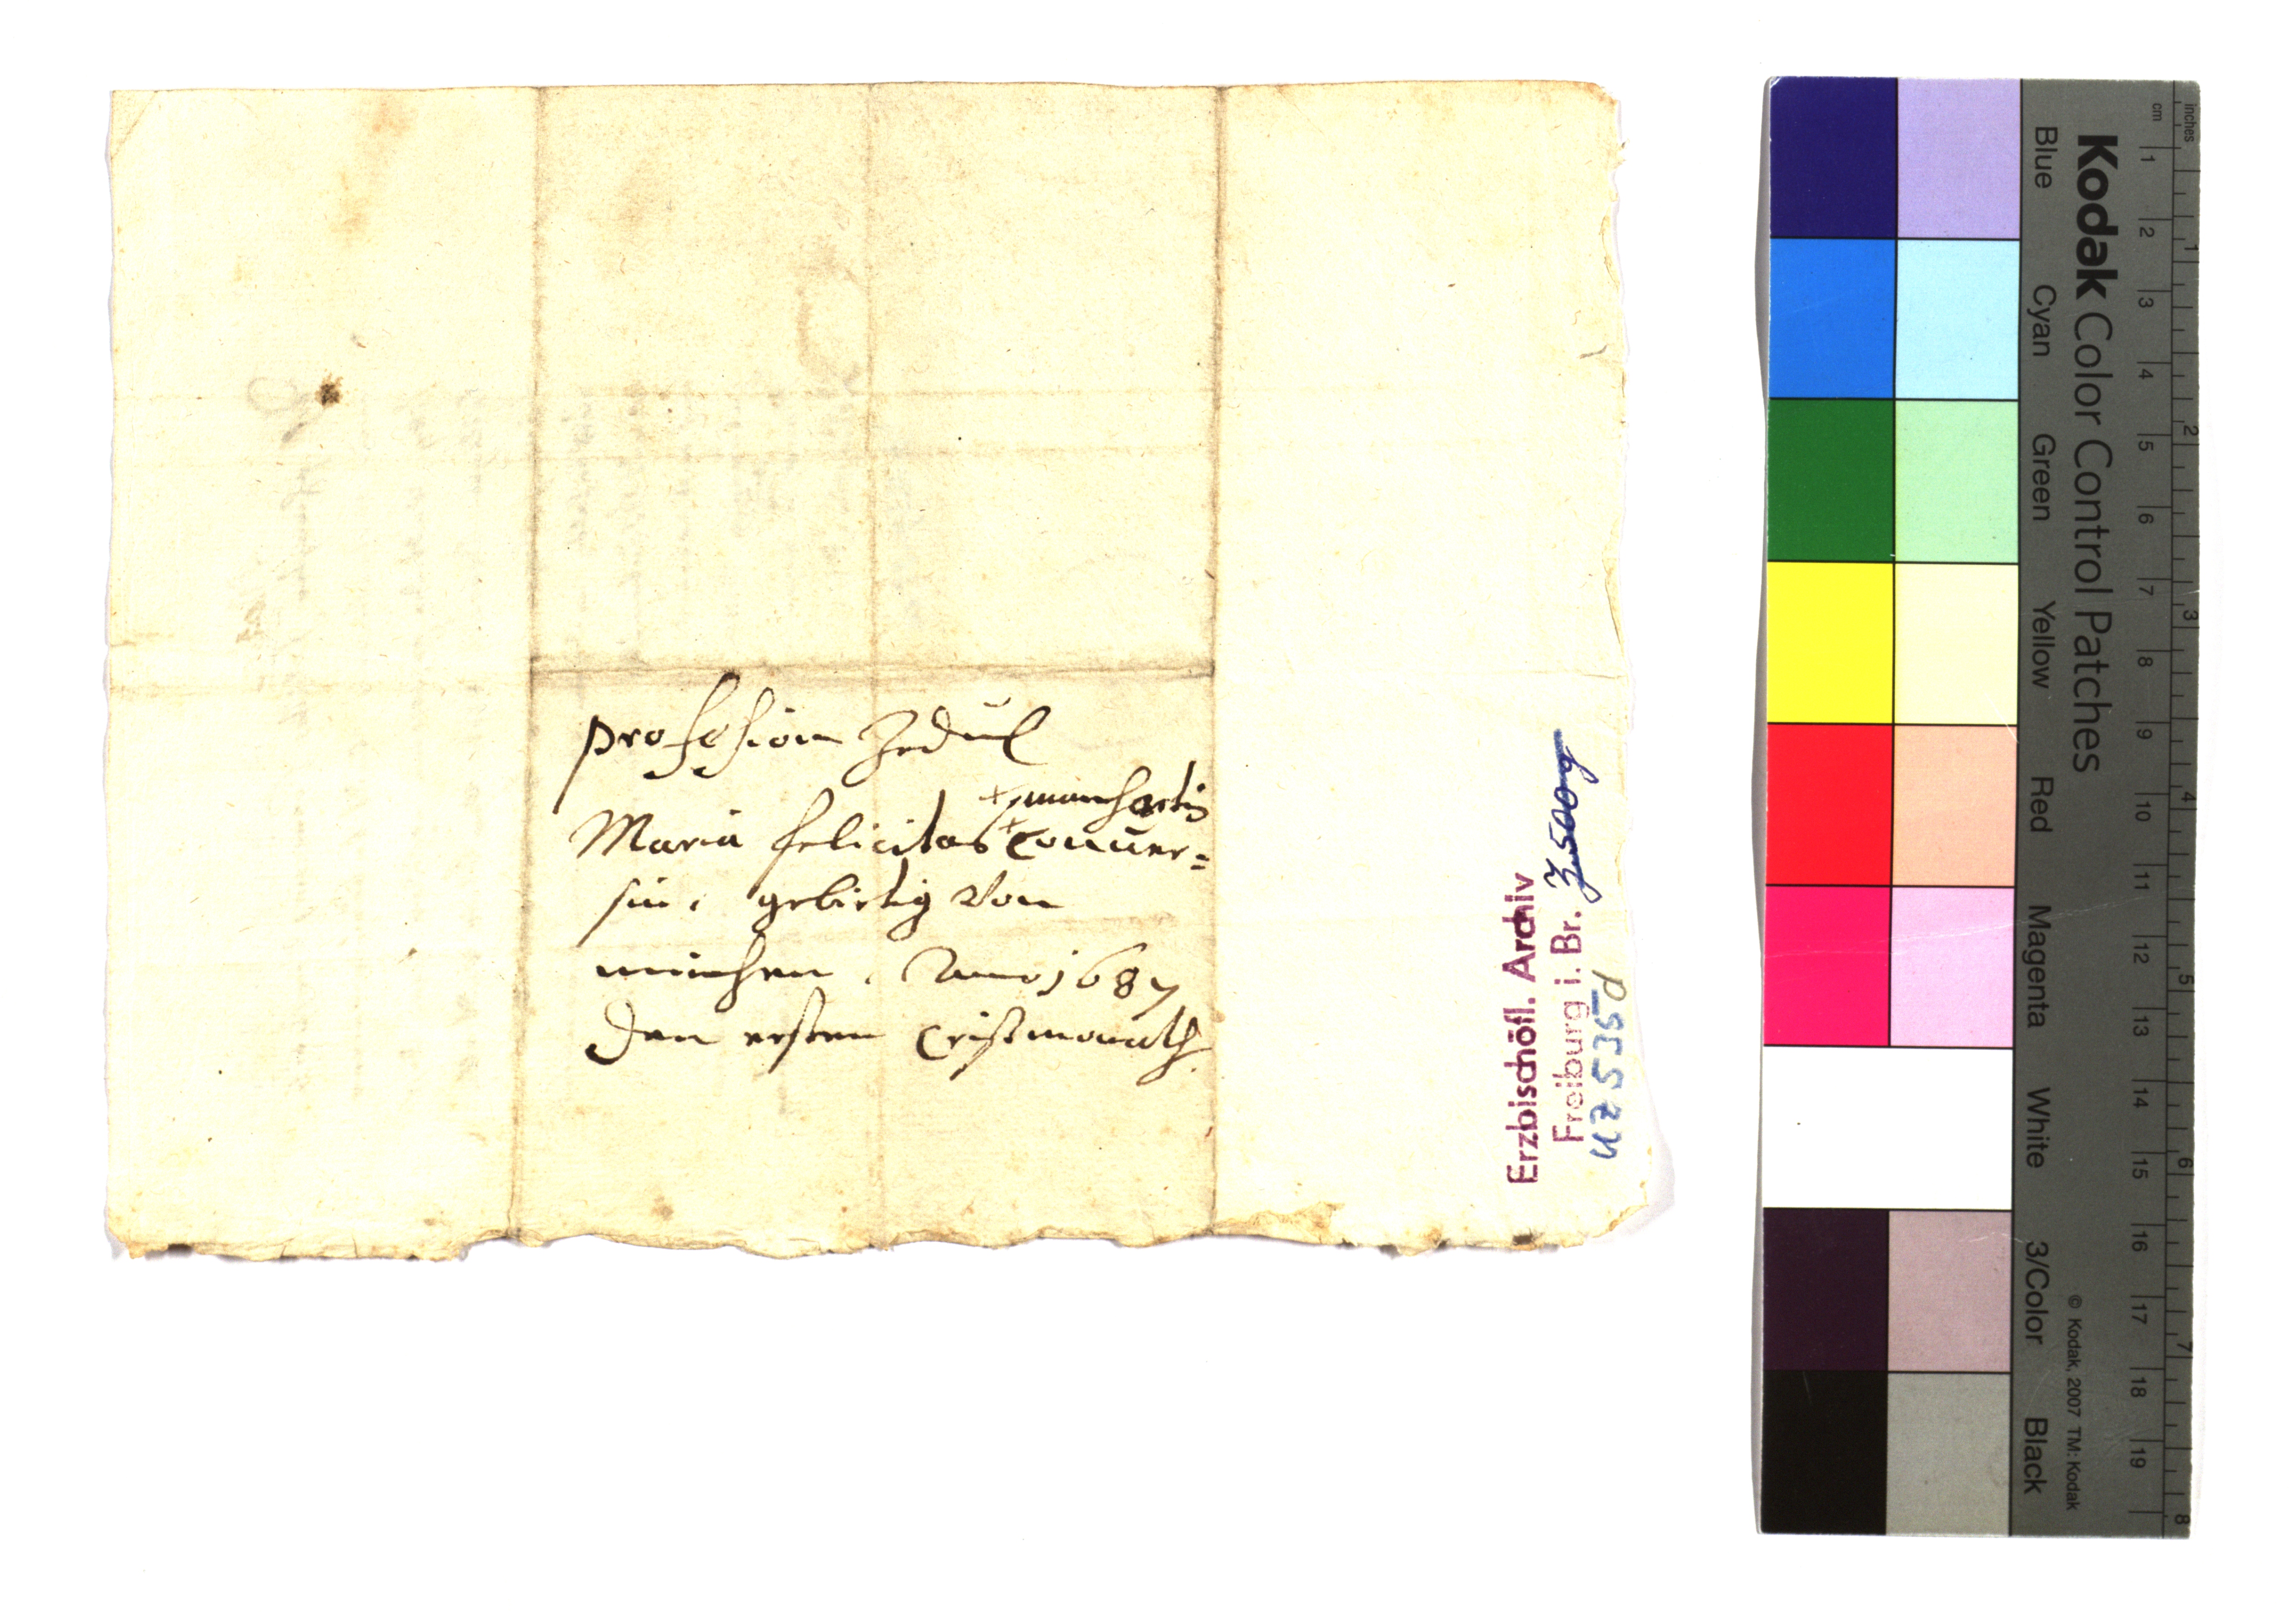 profession Zedul
+ manhartin
Maria felicitas + Conuer=
sin, gebirtig von
münchen. Anno 1687
den ersten Cristmonath.
Erzbischöfl. Archiv
Freiburg i. Br.
UZ 5535
Kodak Color Control Patches
Blue Cyan Green Yellow Red Magenta White 3/Color Black
© Kodak, 2007 TM: Kodak
cm 1 2 3 4 5 6 7 8 9 10 11 12 13 14 15 16 17 18 19
inches 1 2 3 4 5 6 7 8